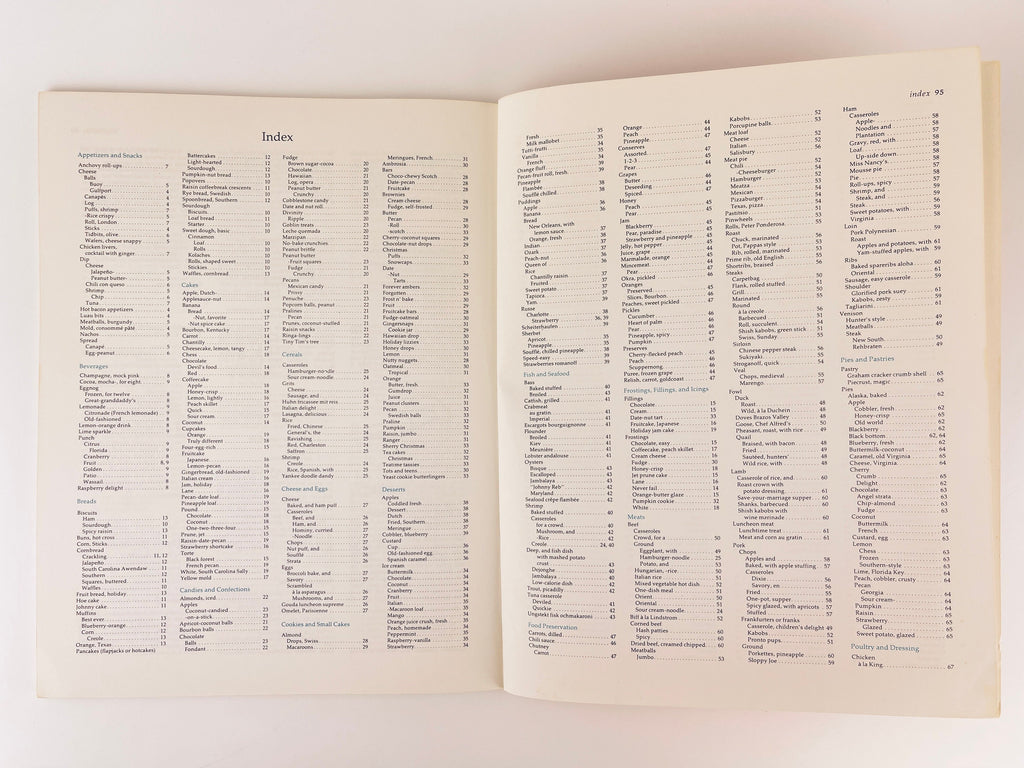 Index
Appetizers and Snacks
Anchovy roll-ups 7
Cheese
Balls
Buoy 5
Gulliport 4
Canapés 4
Log 4
Puffs, shrimp 7
-Rice crispy 5
Roll, London 5
Sticks 4
Tidbits, olive 6
Wafers, cheese snappy 5
Chicken livers,
cocktail with ginger 7
Dip
Cheese
Jalapeño- 5
Peanut butter- 5
Chili con queso 6
Shrimp 6
Chip 7
Tuna 7
Hot bacon appetizers 4
Luau bits 4
Meatballs, burgundy 4
Mold, consommé pâté 4
Nachos 5
Spread
Canapé 5
Egg-peanut 6
Beverages
Champagne, mock pink 8
Cocoa, mocha-, for eight 9
Eggnog
Frozen, for twelve 8
Great-granddaddy's 8
Lemonade 9
Citronade (French lemonade) 9
Old-fashioned 9
Lemon-orange drink 8
Lime sparkle 9
Punch
Citrus 9
Florida 9
Cranberry 8
Fruit 8, 9
Golden 9
Patio 9
Wassail 8
Raspberry delight 8
Breads
Biscuits
Ham 13
Sourdough 10
Spicy raisin 13
Buns, hot cross 11
Corn, Sticks 12
Cornbread
Crackling 11, 12
Jalapeño 12
South Carolina Awendaw 11
Southern 11
Squares, buttered 11
Waffles 13
Fruit bread, holiday 13
Hoe cake 11
Johnny cake 11
Muffins
Best ever 13
Blueberry-orange 13
Corn 12
Creole 13
Orange, Texas 13
Pancakes (flapjacks or hotcakes)
Battercakes 12
Light-hearted 12
Sourdough 12
Pumpkin-nut bread 13
Popovers 12
Raisin coffeebreak crescents 11
Rye bread, Swedish 10
Spoonbread, Southern 12
Sourdough
Biscuits 10
Loaf bread 11
Starter 10
Sweet dough, basic 10
Cinnamon
Loaf 10
Rolls 10
Kolaches 10
Rolls, shaped sweet 10
Stickies 10
Waffles, cornbread 13
Cakes
Apple, Dutch- 14
Applesauce-nut 14
Banana
Bread 14
Nut, favorite 17
-Nut spice cake 17
Bourbon, Kentucky 17
Carrot 17
Chantilly 14
Cheesecake, lemon, tangy 17
Chess 18
Chocolate
Devil's food 14
Red 18
Coffeecake
Apple 18
Honey-crisp 18
Lemon, lightly 16
Peach skillet 17
Quick 15
Sour cream 17
Coconut 14
Cupcakes
Orange 19
Truly different 18
Four-egg-rich 15
Fruitcake
Japanese 16
Lemon-pecan 16
Gingerbread, old-fashioned 19
Italian cream 16
Jam, holiday 18
Lane 16
Pecan-date loaf 19
Pineapple loaf 19
Pound 15
Chocolate 18
Coconut 18
One-two-three-four 15
Prune, jet 15
Raisin-date-pecan 19
Strawberry shortcake 16
Torte
Black forest 15
French pecan 19
White, South Carolina Sally 19
Yellow mold 17
Candies and Confections
Almonds, iced 22
Apples
Coconut-candied 23
-on-a-stick 22
Apricot-coconut balls 21
Bourbon balls 22
Chocolate
Balls 23
Fondant 22
Fudge
Brown sugar-cocoa 20
Chocolate 20
Hawaiian 21
Log, opera 20
Peanut butter 21
Crunchy 20
Cobblestone candy 21
Date and nut roll 22
Divinity 20
Ripple 20
Goblin treats 23
Leche quemada 20
Marzipan 22
No-bake crunchies 22
Peanut brittle 21
Peanut butter
Fruit squares 23
Fudge 21
Crunchy 20
Pecans
Mexican candy 21
Prissy 21
Penuche 23
Popcorn balls, peanut 22
Pralines 21
Pecan 21
Prunes, coconut-stuffed 21
Raisin snacks 23
Ringa-lings 23
Tiny Tim's tree 23
Cereals
Casseroles
Hamburger-noodle 25
Sour cream-noodle 24
Grits
Cheese 24
Sausage, and 24
Huhn fricassee mit reis 25
Italian delight 25
Lasagna, delicious 24
Rice
Fried, Chinese 25
General's, the 25
Ravishing 25
Red, Charleston 24
Saffron 25
Shrimp
Creole 24
Rice, Spanish, with 25
Yankee doodle dandy 25
Cheese and Eggs
Cheese
Baked, and ham pull 27
Casseroles
Beef, and 26
Ham, and 26
Hominy, curried 27
-Noodle 27
Chops 27
Nut puff, and 26
Soufflé 26
Strata 26
Eggs
Broccoli bake, and 27
Savory 27
Scrambled
à la asparagus 26
Mushrooms, and 27
Gouda luncheon supreme 26
Omelet, Parisienne 27
Cookies and Small Cakes
Almond
Drops, Swiss 28
Macaroons 29
Meringues, French 31
Ambrosia 30
Bars
Choco-chewy Scotch 28
Date-pecan 28
Fruitcake 28
Brownies
Cream cheese 28
Fudge, self-frosted 29
Butter
Pecan 28
-Roll 30
-scotch 33
Cherry-coconut squares 29
Chocolate-nut drops 29
Christmas
Puffs 32
Snowcaps 30
Date
-Nut 29
Tarts 33
Forever ambers 32
Forgotten 31
Frost n' bake 30
Fruit 31
Fruitcake bars 28
Fudge-oatmeal 30
Gingersnaps 31
Cookie jar 31
Hawaiian drop 31
Holiday lizzies 33
Honey drops 30
Lemon 31
Nutty nuggets 28
Oatmeal 30
Tropical 31
Orange
Butter, fresh 33
Gumdrop 32
Juice 31
Peanut clusters 31
Pecan 32
Swedish balls 33
Praline 32
Pumpkin 32
Raisin, jumbo 31
Ranger 31
Sherry Christmas 33
Tea cakes 32
Christmas 32
Teatime tassies 33
Tots and teens 33
Yeast cookie butterfingers 33
Desserts
Apples
Coddled fresh 38
Dessert 38
Dutch 38
Fried, Southern 38
Meringue 37
Cobbler, blueberry 39
Custard
Cup 36
Old-fashioned egg 36
Spanish caramel 36
Ice cream
Buttermilk 34
Chocolate 34
Coconut 34
Cranberry 34
Fruit 35
Italian 35
Macaroon loaf 35
Mango 35
Orange juice crush, fresh 35
Peach, homemade 34
Peppermint 35
Raspberry-vanilla 35
Strawberry 34
index 95
Fresh 35
Milk mallobet 34
Tutti-frutti 35
Vanilla 34
French 39
Orange fluff 39
Pecan-fruit roll, fresh 39
Pineapple
Flambée 38
Soufflé chilled 38
Puddings 36
Apple 36
Banana
Bread
New Orleans, with
lemon sauce 37
Orange, fresh 38
Indian 37
Ozark 37
Peach-nut 36
Queen of 36
Rice
Chantilly raisin 37
Frosted 37
Sweet potato 37
Tapioca 39
Yam 37
Russe
Charlotte 38
Strawberry 36, 39
Scheiterhaufen 39
Sherbet
Apricot 35
Pineapple 35
Soufflé, chilled pineapple 38
Speed-easy 39
Strawberries romanoff 39
Fish and Seafood
Bass
Baked stuffed 40
Broiled 43
Catfish, grilled 41
Crabmeat
au gratin 41
Imperial 41
Escargots bourguignonne 41
Flounder
Broiled 41
Kiev 41
Meunière 41
Lobster andalouse 41
Oysters
Bisque 43
Escalloped 43
Jambalaya 42
"Johnny Reb" 42
Maryland 42
Seafood crêpe flambée 42
Shrimp
Baked stuffed 40
Casseroles
for a crowd 40
Mushroom, and 42
-Rice 42
Creole 24, 40
Deep, and fish dish
with mashed potato
crust 43
Dejonghe 43
Jambalaya 42
Low-calorie dish 42
Trout, picadilly 42
Tuna casserole
Deviled 41
Quickie 43
Ungsteki fisk ochmakaroni 43
Food Preservation
Carrots, dilled 47
Chili sauce 46
Chutney
Carrot 47
Orange 44
Peach 47
Pineapple 47
Conserves
Assorted 45
1-2-3 45
Pear 44
Grapes
Butter 46
Deseeding 44
Spiced 47
Honey
Peach 47
Pear 45
Jam
Blackberry 47
Pear, paradise 45
Strawberry and pineapple 45
Jelly, hot pepper 45
Juice, grape 44
Marmalade, orange 44
Mincemeat
Pear 45
Okra, pickled 46
Oranges
Preserved 45
Slices, Bourbon 45
Peaches, sweet pickled 47
Pickles
Cucumber 46
Heart of palm 46
Pear 46
Pineapple, spicy 47
Pumpkin 47
Preserves
Cherry-flecked peach 45
Peach 44
Scuppernong 44
Puree, frozen grape 44
Relish, carrot, goldcoast 47
Frostings, Fillings, and Icings
Fillings
Chocolate 15
Cream 15
Date-nut tart 33
Fruitcake, Japanese 16
Holiday jam cake 19
Frostings
Chocolate, easy 15
Coffeecake, peach skillet 17
Cream cheese 16
Fudge 30
Honey-crisp 18
Jet prune cake 15
Lane 16
Never fail 14
Orange-butter glaze 15
Pumpkin cookie 32
White 18
Meats
Beef
Casseroles
Crowd, for a 50
Ground
Eggplant, with 49
Hamburger-noodle 25
Potato, and 53
Hungarian, -rice 50
Italian rice 51
Mixed vegetable hot dish 52
One-dish meal 51
Orient 50
Oriental 51
Sour cream-noodle 24
Biff à la Lindstrom 52
Corned beef
Hash patties 60
Spicy 60
Dried beef, creamed chipped 60
Meatballs
Jumbo 53
Kabobs 52
Porcupine balls 53
Meat loaf
Cheese 52
Italian 52
Salisbury 56
Meat pie
Chili 52
-Cheeseburger 54
Hamburger 53
Meatza 52
Mexican 54
Pizzaburger 54
Texas, pizza 51
Pastitsio 53
Pinwheels 53
Rolls, Peter Ponderosa 54
Roast
Chuck, marinated 53
Pot, Pappas style 53
Rib, rolled, marinated 53
Prime rib, old English 55
Shortribs, braised 56
Steaks
Carpetbag 50
Flank, rolled stuffed 51
Grill 50
Marinated 55
Round
à la creole 56
Barbecued 51
Roll, succulent 54
Shish kabobs, green stick 51
Swiss, Sunday 55
Sirloin
Chinese pepper steak 56
Sukiyaki 55
Stroganoff, quick 54
Veal
Chops, medieval 55
Marengo 57
Fowl
Duck
Roast 48
Wild, à la Duchein 48
Doves Brazos Valley 48
Goose, Chef Alfred's 50
Pheasant, roast, with rice 49
Quail
Braised, with bacon 48
Fried 49
Sautéed, hunters' 48
Wild rice, with 48
Lamb
Casserole of rice, and 60
Roast crown with
potato dressing 61
Save-your-marriage supper 60
Shanks, barbecued 60
Shish kabobs with
wine marinade 60
Luncheon meat
Lunchtime treat 61
Meat and corn au gratin 61
Pork
Chops
Apples and 57
Baked, with apple stuffing 57
Casseroles
Dixie 56
Savory, en 56
Fried 55
One-pot, supper 58
Spicy glazed, with apricots 57
Stuffed 57
Frankfurters or franks
Casserole, children's delight 49
Kabobs 52
Pronto pups 51
Ground
Porkettes, pineapple 60
Sloppy Joe 59
Ham
Casseroles
Apple- 58
Noodles and 58
Plantation 58
Gravy, red, with 58
Loaf 58
Up-side down 58
Miss Nancy's 58
Mousse pie 57
Pie 58
Roll-ups, spicy 57
Shrimp, and 59
Steak, and 56
Steak 56
Sweet potatoes, with 59
Virginia 58
Loin
Pork Polynesian 59
Roast
Apples and potatoes, with 61
Yam-stuffed apples, with 59
Ribs
Baked spareribs aloha 60
Oriental 61
Sausage, easy casserole 59
Shoulder
Glorified pork suey 61
Kabobs, zesty 59
Tagliarini 61
Venison
Hunter's style 49
Meatballs 49
Steak
New South 50
Rehbraten 49
Pies and Pastries
Pastry
Graham cracker crumb shell 65
Piecrust, magic 65
Pies
Alaska, baked 62
Apple
Cobbler, fresh 62
Honey-crisp 62
Old world 62
Blackberry 62
Black bottom 62, 64
Blueberry, fresh 62
Buttermilk-coconut 64
Caramel, old Virginia 65
Cheese, Virginia 64
Cherry
Crumb 65
Delight 62
Chocolate 63
Angel strata 63
Chip-almond 63
Fudge 63
Coconut
Buttermilk 64
French 63
Custard, egg 63
Lemon
Chess 63
Frozen 63
Southern-style 63
Lime, Florida Key 64
Peach, cobbler, crusty 64
Pecan
Georgia 64
Sour cream- 64
Pumpkin 64
Raisin 65
Strawberry 65
Glazed 65
Sweet potato, glazed 65
Poultry and Dressing
Chicken
à la King 67